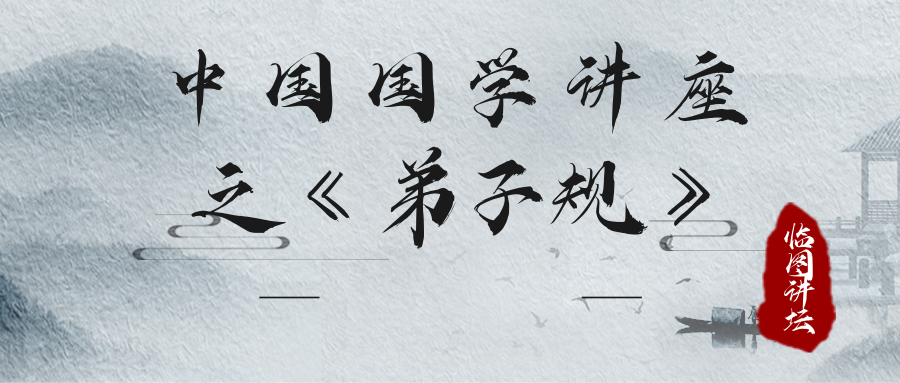 中国国学讲座
之《弟子规》
临图讲坛